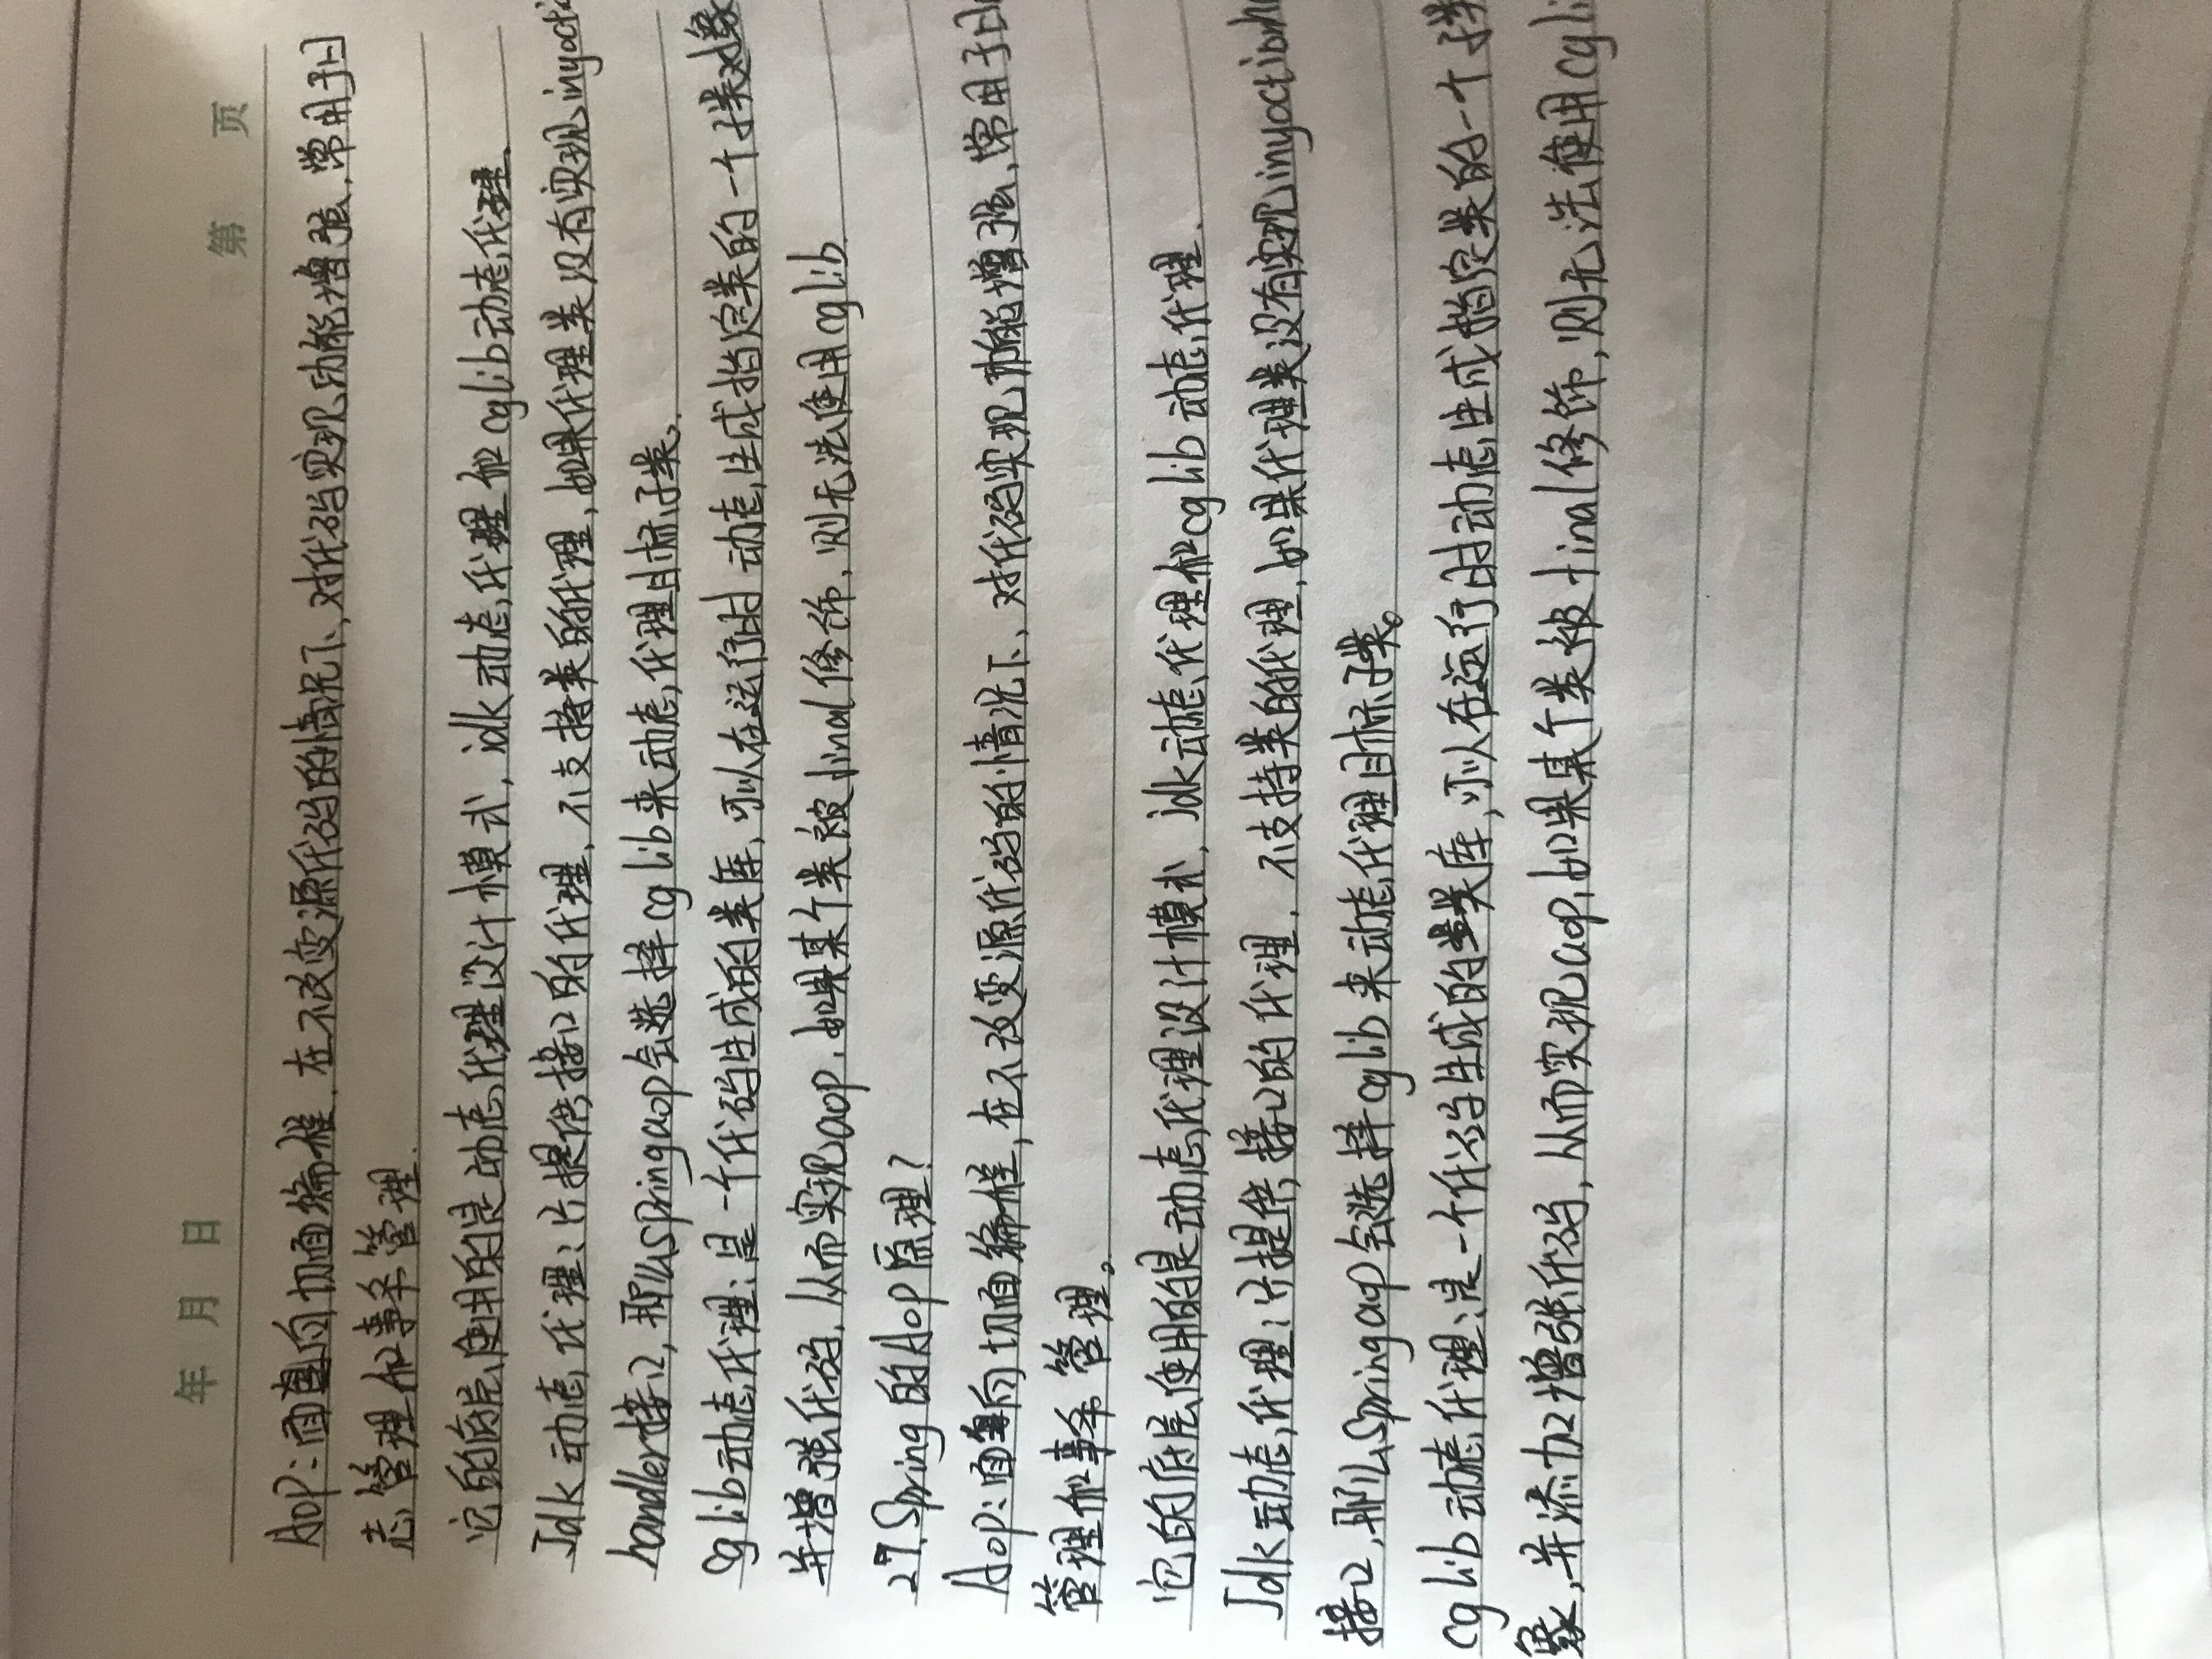 年 月 日
第 页
Aop：面向切面编程，在不改变源代码的情况下，对代码实现功能增强，常用于日
志管理和事务管理.
它的底层使用的是动态代理设计模式，jdk动态代理和cglib动态代理.
Jdk动态代理：只提供接口的代理，不支持类的代理，如果代理类没有实现inyocti
handler接口，那么springaop会选择cglib来动态代理目标子类.
cglib动态代理：是一个代码生成的类库，可以在运行时动态生成指定类的一个子类对象
并增强代码，从而实现aop，如果某个类被final修饰，则无法使用cglib.
27.Spring的Aop原理？
Aop：面向切面编程，在不改变源代码的情况下，对代码实现功能增强，常用于日
管理和事务管理。
它的底层使用的是动态代理设计模式，jdk动态代理和cglib动态代理.
Jdk动态代理：只提供接口的代理，不支持类的代理，如果代理类没有实现inyoctionh
接口，那么Springaop会选择cglib来动态代理目标子类。
cglib动态代理：是一个代码生成的类库，可以在运行时动态生成指定类的一个子类
象，并添加增强代码，从而实现aop，如果某个类被final修饰，则无法使用cgli